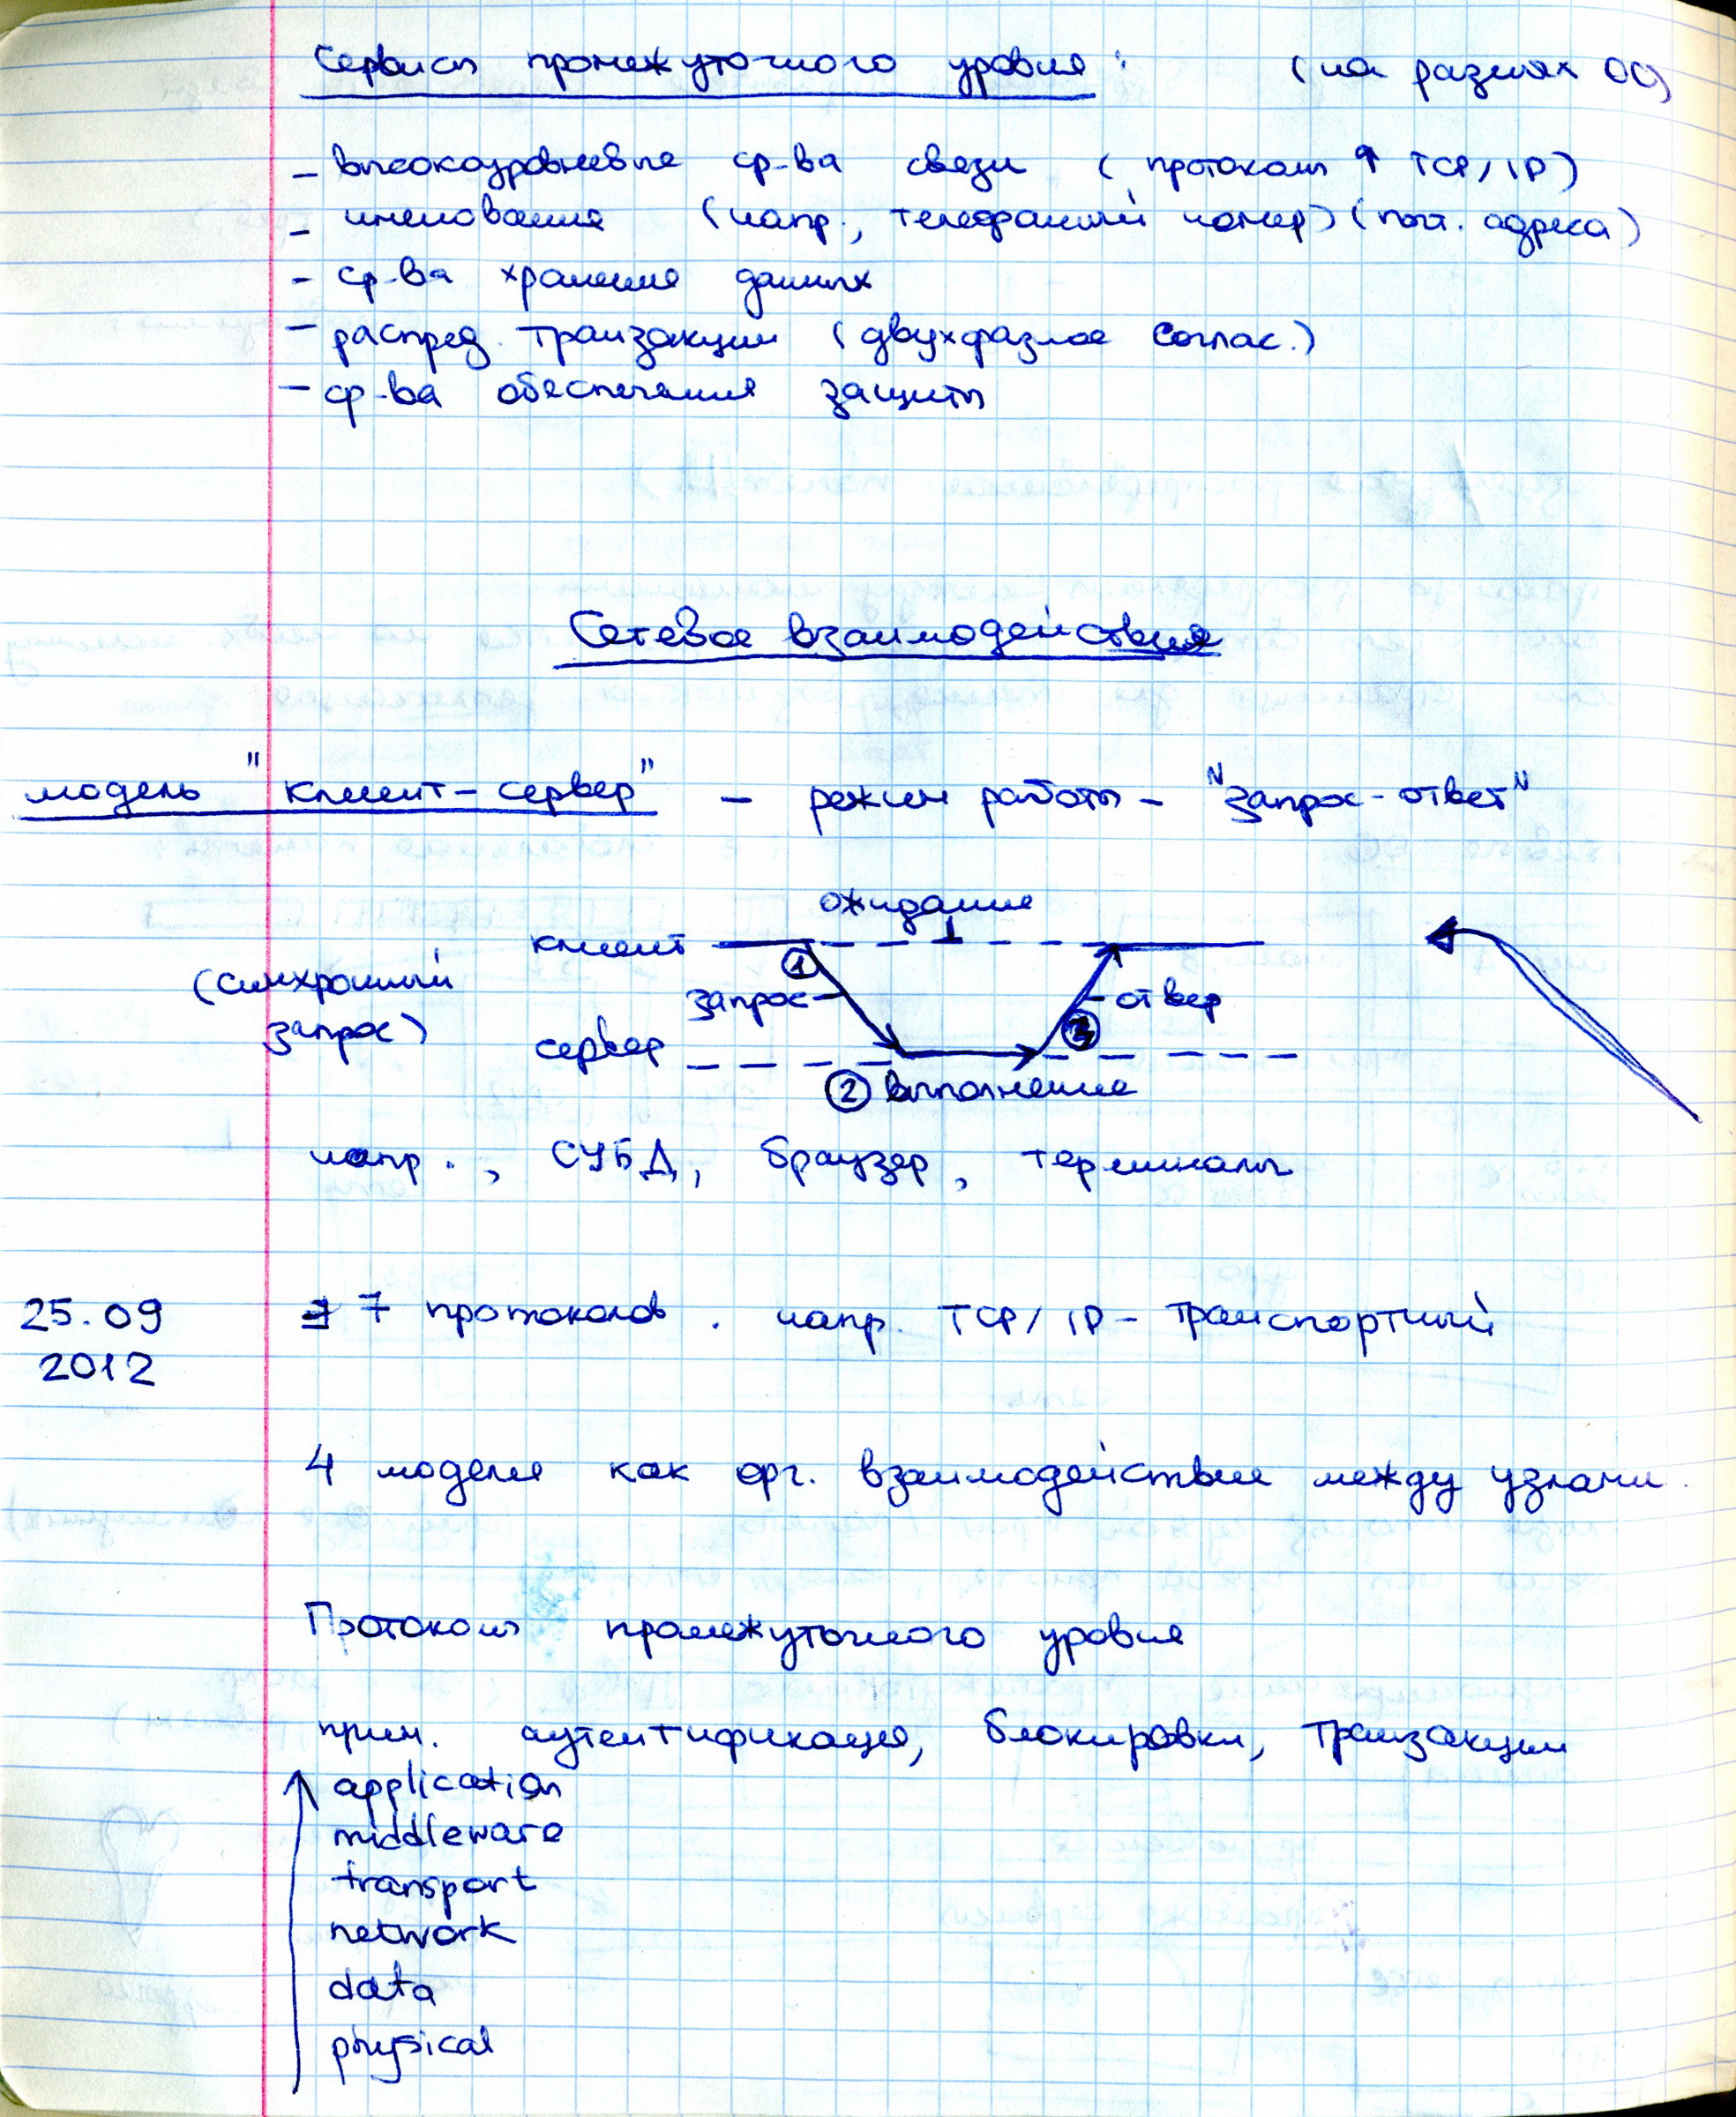 Сервисы промежуточного уровня: (на разных ОС)
- высокоуровневые ср-ва связи (протоколы ↑ TCP/IP)
- именования (напр., телефонный номер) (почт. адреса)
- ср-ва хранения данных
- распред. транзакции (двухфазное соглас.)
- ср-ва обеспечения защиты
Сетевое взаимодействие
модель "клиент-сервер" - режим работы - "запрос-ответ"
ожидание
клиент
(синхронный
запрос)
①
запрос
③
отвер
сервер
② выполнение
напр., СУБД, браузер, терминалы
25.09
2012
7 протоколов. напр. TCP/IP - транспортный
4 модели как орг. взаимодействие между узлами.
Протоколы промежуточного уровня
прим. аутентификация, блокировки, транзакции
application
middleware
transport
network
data
physical